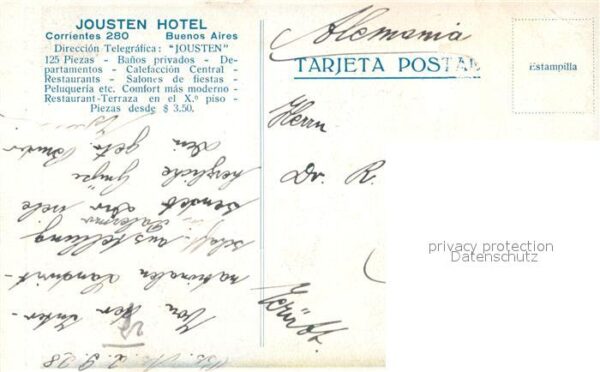 JOUSTEN HOTEL
Corrientes 280 Buenos Aires
Dirección Telegráfica: "JOUSTEN"
125 Piezas - Baños privados - De-
partamentos - Calefacción Central -
Restaurants - Salones de fiestas -
Peluquería etc. Comfort más moderno -
Restaurant-Terraza en el X.º piso -
Piezas desde $ 3.50.
Alemania
TARJETA POSTAL
Estampilla
Herrn
Dr. R.
privacy protection
Datenschutz
2.9.28
Von der Inter-
nationalen Landwirt-
schafts-ausstellung
in Palermo
sendet Ihr viele
herzliche Grüße